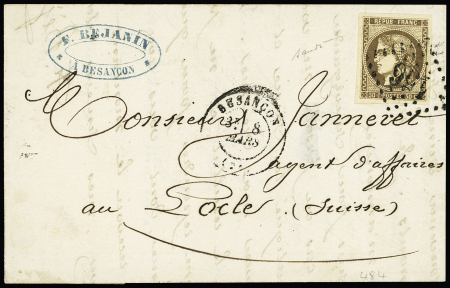 F. BEJANIN
A BESANÇON
REPUB. FRANC.
BESANÇON
8
MARS
Monsieur Janneret
agent d'affaires
au Locle (Suisse)
484